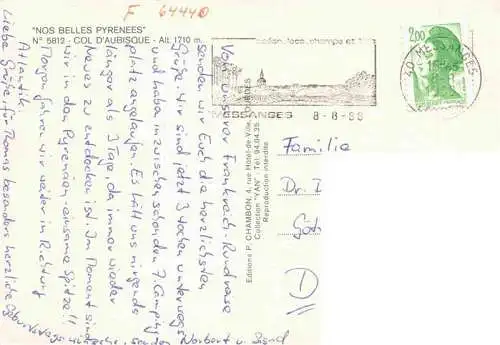 F 64440
"NOS BELLES PYRENEES"
N° 5812 - COL D'AUBISQUE - Alt. 1710 m.
MESSANGES 8-8-88
2,00
40 MESSANGES
Von unserer Frankreich-Rundreise
senden wir Euch die herzlichsten
Grüße. Wir sind jetzt 3 Wochen unterwegs
und haben inzwischen schon den 7. Camping-
platz angelaufen. Es hält uns nirgends
länger als 3 Tage, da immer wieder
Neues zu entdecken ist. Im Moment sind
wir in den Pyrenäen - einsame Spitze!!
Morgen fahren wir weiter in Richtung
Atlantik.
Liebe Grüße, für Thomas besonders herzliche
Geburtstagswünsche, senden
Norbert u.
Editions P. CHAMBON, 4, rue Hôtel-de-Ville, LOURDES
Collection "YAN" - Tél. 94.04.35
Reproduction interdite
Familie
Dr.
D